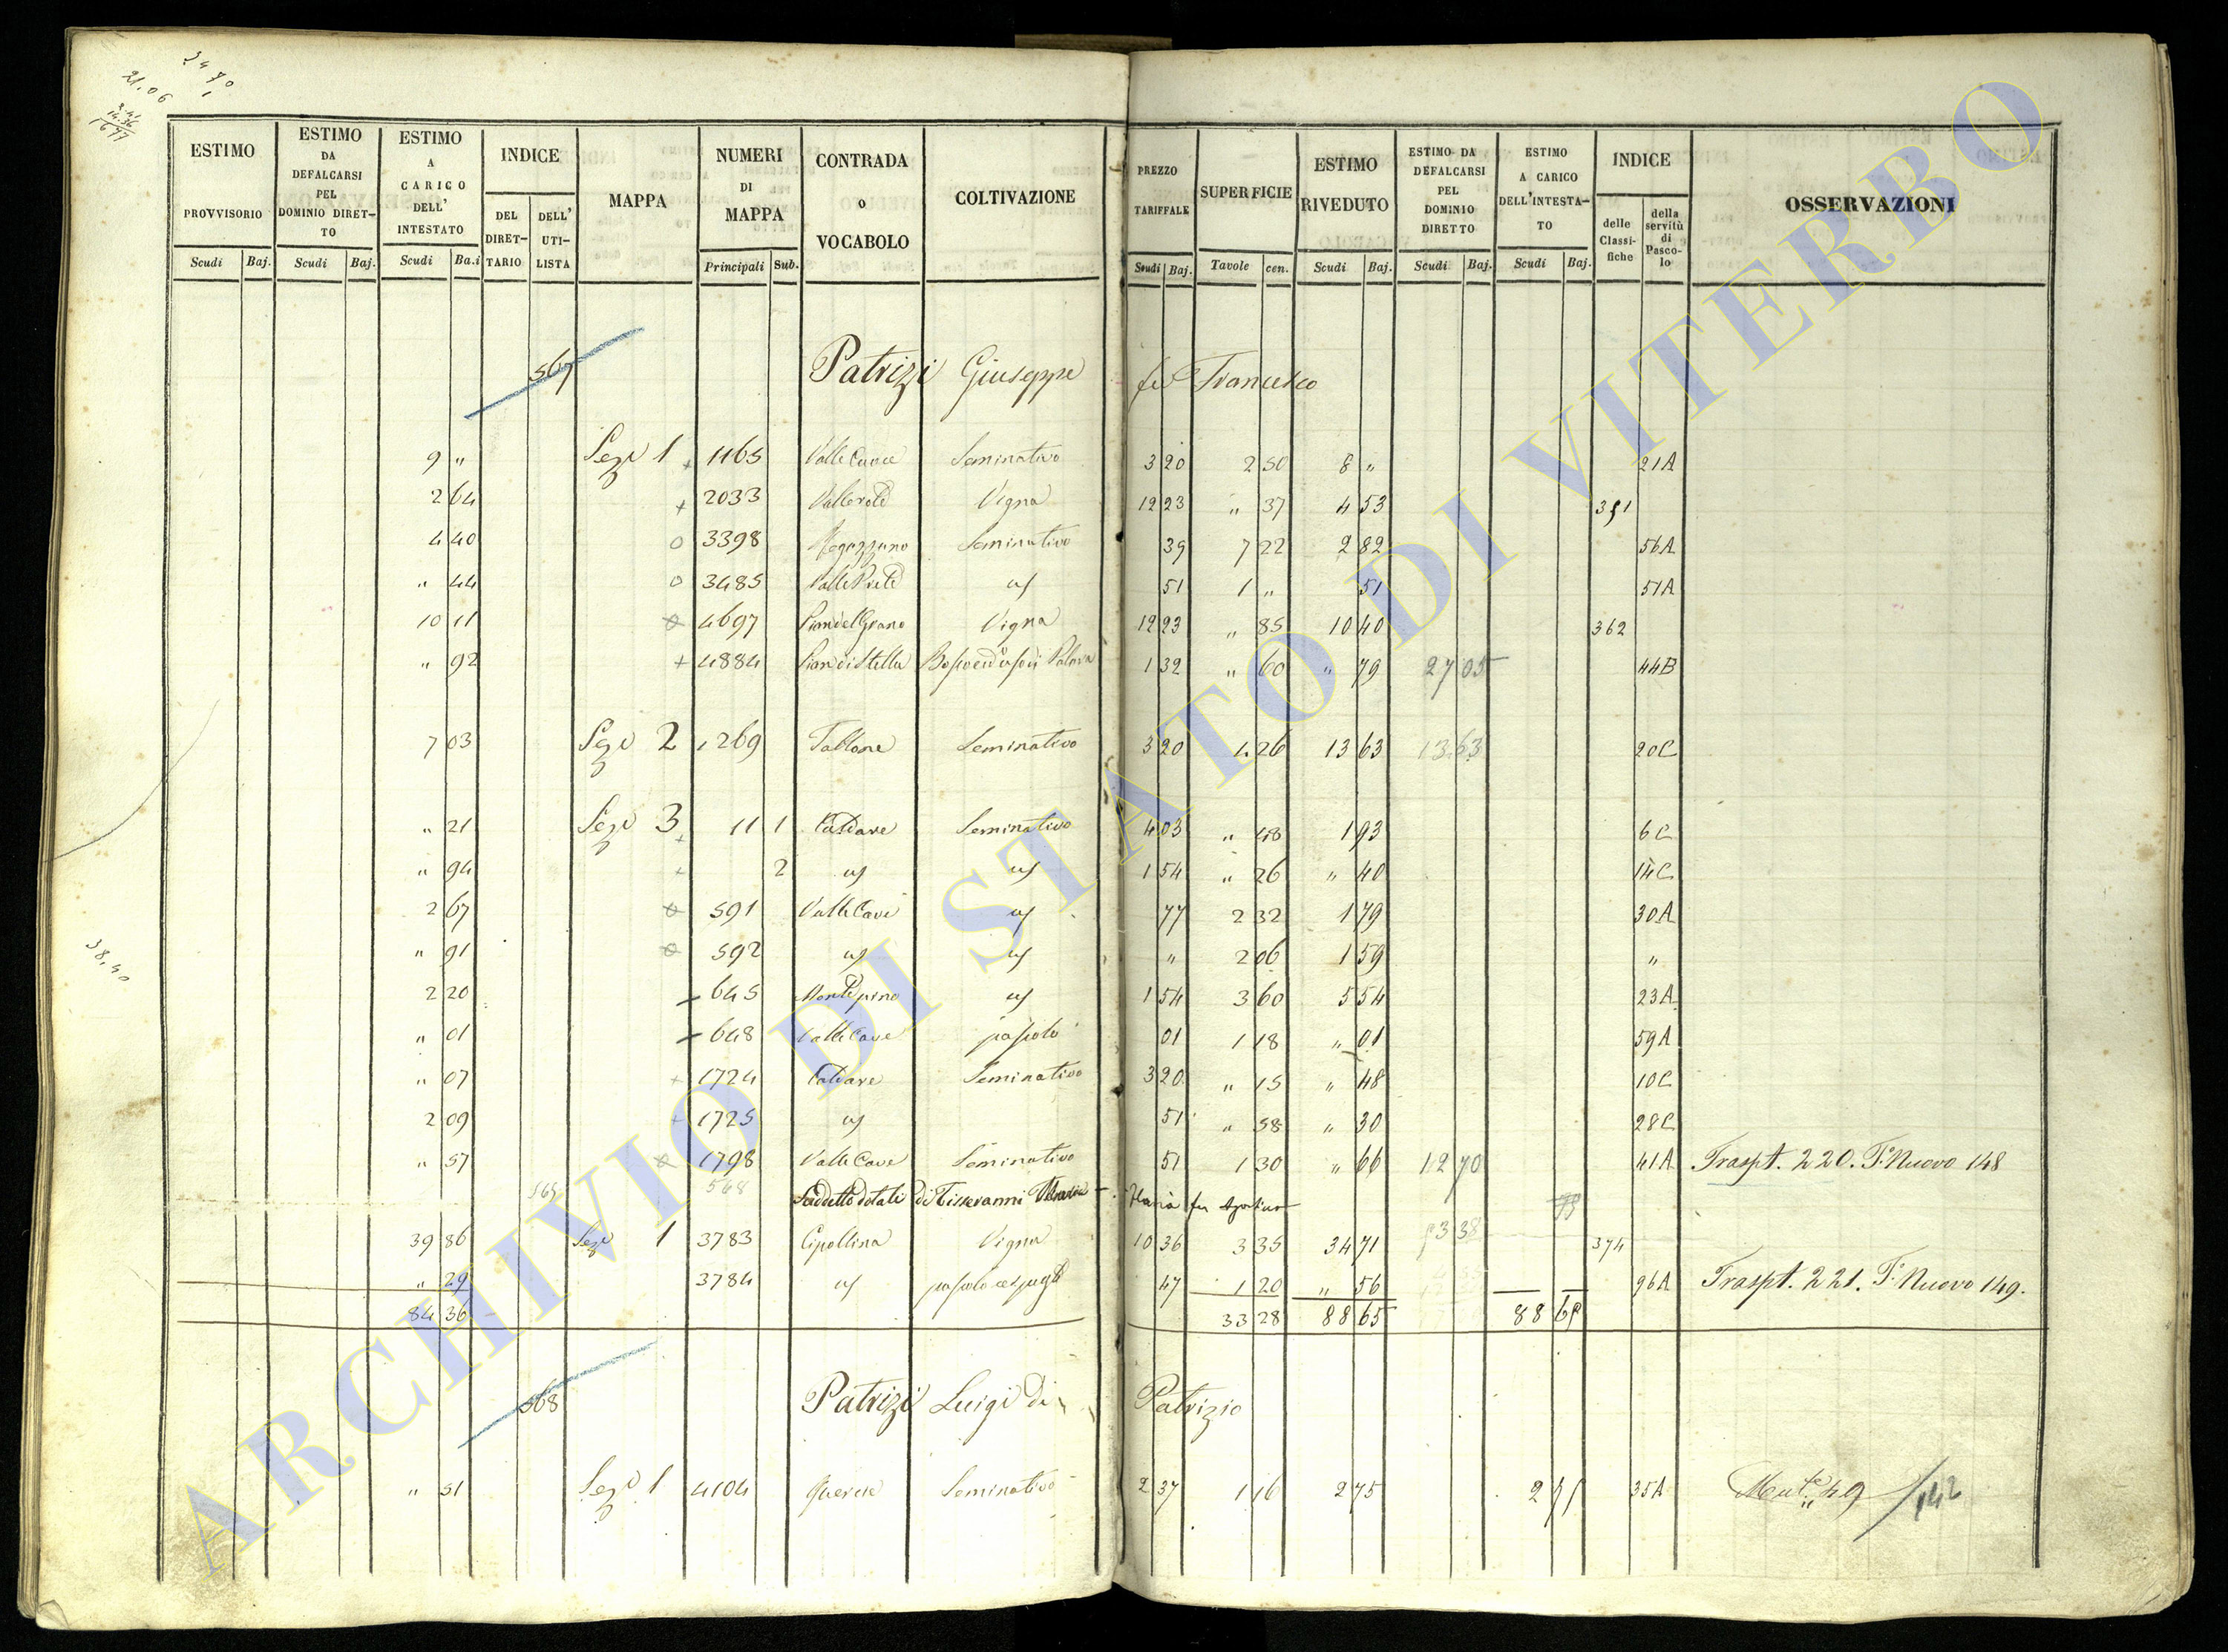 3470
21.06
38.40
ESTIMO PROVVISORIO Scudi Baj.
ESTIMO DA DEFALCARSI PEL DOMINIO DIRET-TO Scudi Baj.
ESTIMO A CARICO DELL' INTESTATO Scudi Ba.i
INDICE DEL DIRET-TARIO DELL' UTI-LISTA
MAPPA
NUMERI DI MAPPA Principali Sub.
CONTRADA o VOCABOLO
COLTIVAZIONE
PREZZO TARIFFALE Scudi Baj.
SUPERFICIE Tavole cen.
ESTIMO RIVEDUTO Scudi Baj.
ESTIMO DA DEFALCARSI PEL DOMINIO DIRETTO Scudi Baj.
ESTIMO A CARICO DELL'INTESTA-TO Scudi Baj.
INDICE delle Classi-fiche della servitù di Pasco-lo
OSSERVAZIONI
567 Patrizi Giuseppe fu Francesco
9 " Sez.e 1 + 1165 Valle Cuore Seminativo 3 20 2 50 8 " 21A
2 64 + 2033 Vigna 12 23 " 37 4 53 351
4 40 o 3398 Seminativo 39 7 22 2 82 56A
" 44 o 3485 Valle Prete 51 1 " 51 51A
10 11 4697 Pian del Grano Vigna 12 23 " 85 10 40 362
" 92 + 4884 Pian di Stella 1 32 " 60 " 79 27 05 44B
7 03 Sez.e 2 1269 Tablone Seminativo 3 20 4 26 13 63 13 63 20C
" 21 Sez.e 3 11 1 Caldare Seminativo 4 03 " 48 1 93 6C
" 94 2 1 54 " 26 " 40 14C
2 67 591 Valle Cave 77 2 32 1 79 30A
" 91 592 " 2 06 1 59 "
2 20 645 Monte pino 1 54 3 60 5 54 23A
" 01 648 Valle Cave pascolo 01 1 18 " 01 59A
" 07 + 1724 Caldare Seminativo 3 20 " 15 " 48 10C
2 09 + 1725 51 " 58 " 30 28C
" 57 1798 Valle Cave Seminativo 51 1 30 " 66 12 70 41A Traspt. 220. F. Nuovo 148
Suddetto dotali di Tisseranni
39 86 Sez.e 1 3783 Cipollina Vigna 10 36 3 35 34 71 53 38 374
" 29 3784 47 1 20 " 56 96A Traspt. 221. F. Nuovo 149.
84 36 33 28 88 65 88 65
568 Patrizi Luigi di Patrizio
" 51 Sez.e 1 4104 Quercie Seminativo 2 37 1 16 2 75 2 75 35A 49 / 142
ARCHIVIO DI STATO DI VITERBO